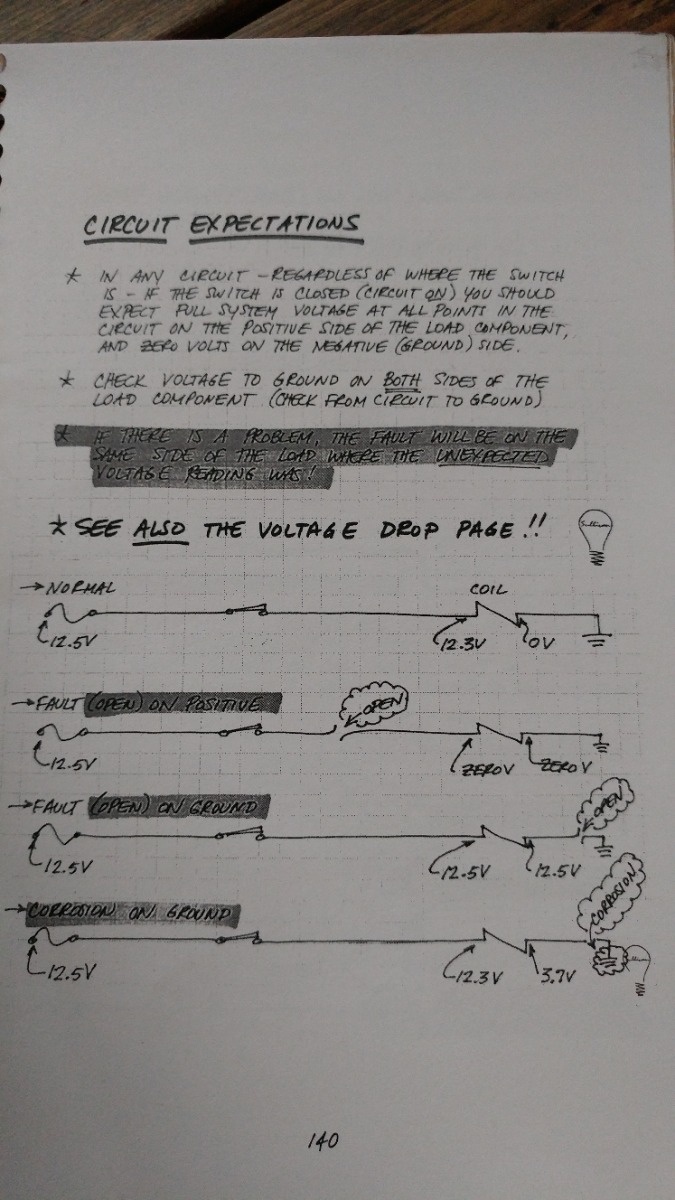 CIRCUIT EXPECTATIONS
* IN ANY CIRCUIT - REGARDLESS OF WHERE THE SWITCH
IS - IF THE SWITCH IS CLOSED (CIRCUIT ON) YOU SHOULD
EXPECT FULL SYSTEM VOLTAGE AT ALL POINTS IN THE
CIRCUIT ON THE POSITIVE SIDE OF THE LOAD COMPONENT,
AND ZERO VOLTS ON THE NEGATIVE (GROUND) SIDE.
* CHECK VOLTAGE TO GROUND ON BOTH SIDES OF THE
LOAD COMPONENT. (CHECK FROM CIRCUIT TO GROUND)
* IF THERE IS A PROBLEM, THE FAULT WILL BE ON THE
SAME SIDE OF THE LOAD WHERE THE UNEXPECTED
VOLTAGE READING WAS!
* SEE ALSO THE VOLTAGE DROP PAGE!!
Sullivan
→ NORMAL
COIL
12.5V
12.3V
0V
→ FAULT (OPEN) ON POSITIVE
OPEN
12.5V
ZERO V
ZERO V
→ FAULT (OPEN) ON GROUND
OPEN
12.5V
12.5V
12.5V
→ CORROSION ON GROUND
CORROSION
12.5V
12.3V
3.7V
Sullivan
140